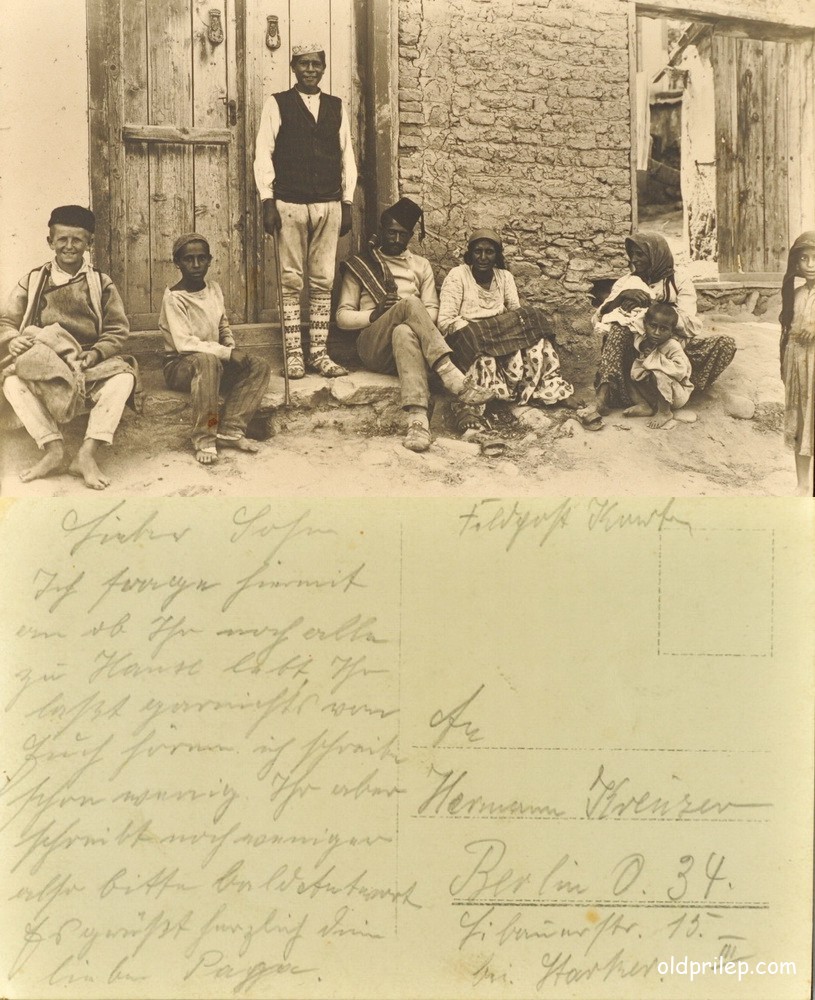 Lieber Sohn.
Ich frage hiermit
an ob Ihr noch alle
zu Hause lebt, Ihr
laßt garnichts von
Euch hören. ich schreibe
schon wenig. Ihr aber
schreibt noch weniger
also bitte bald Antwort
Es grüßt herzlich dein
lieber Papa.
Feldpost Karte
An
Hermann Kreuzer
Berlin O. 34.
Libauerstr. 15.
bei Starker. III
oldprilep.com